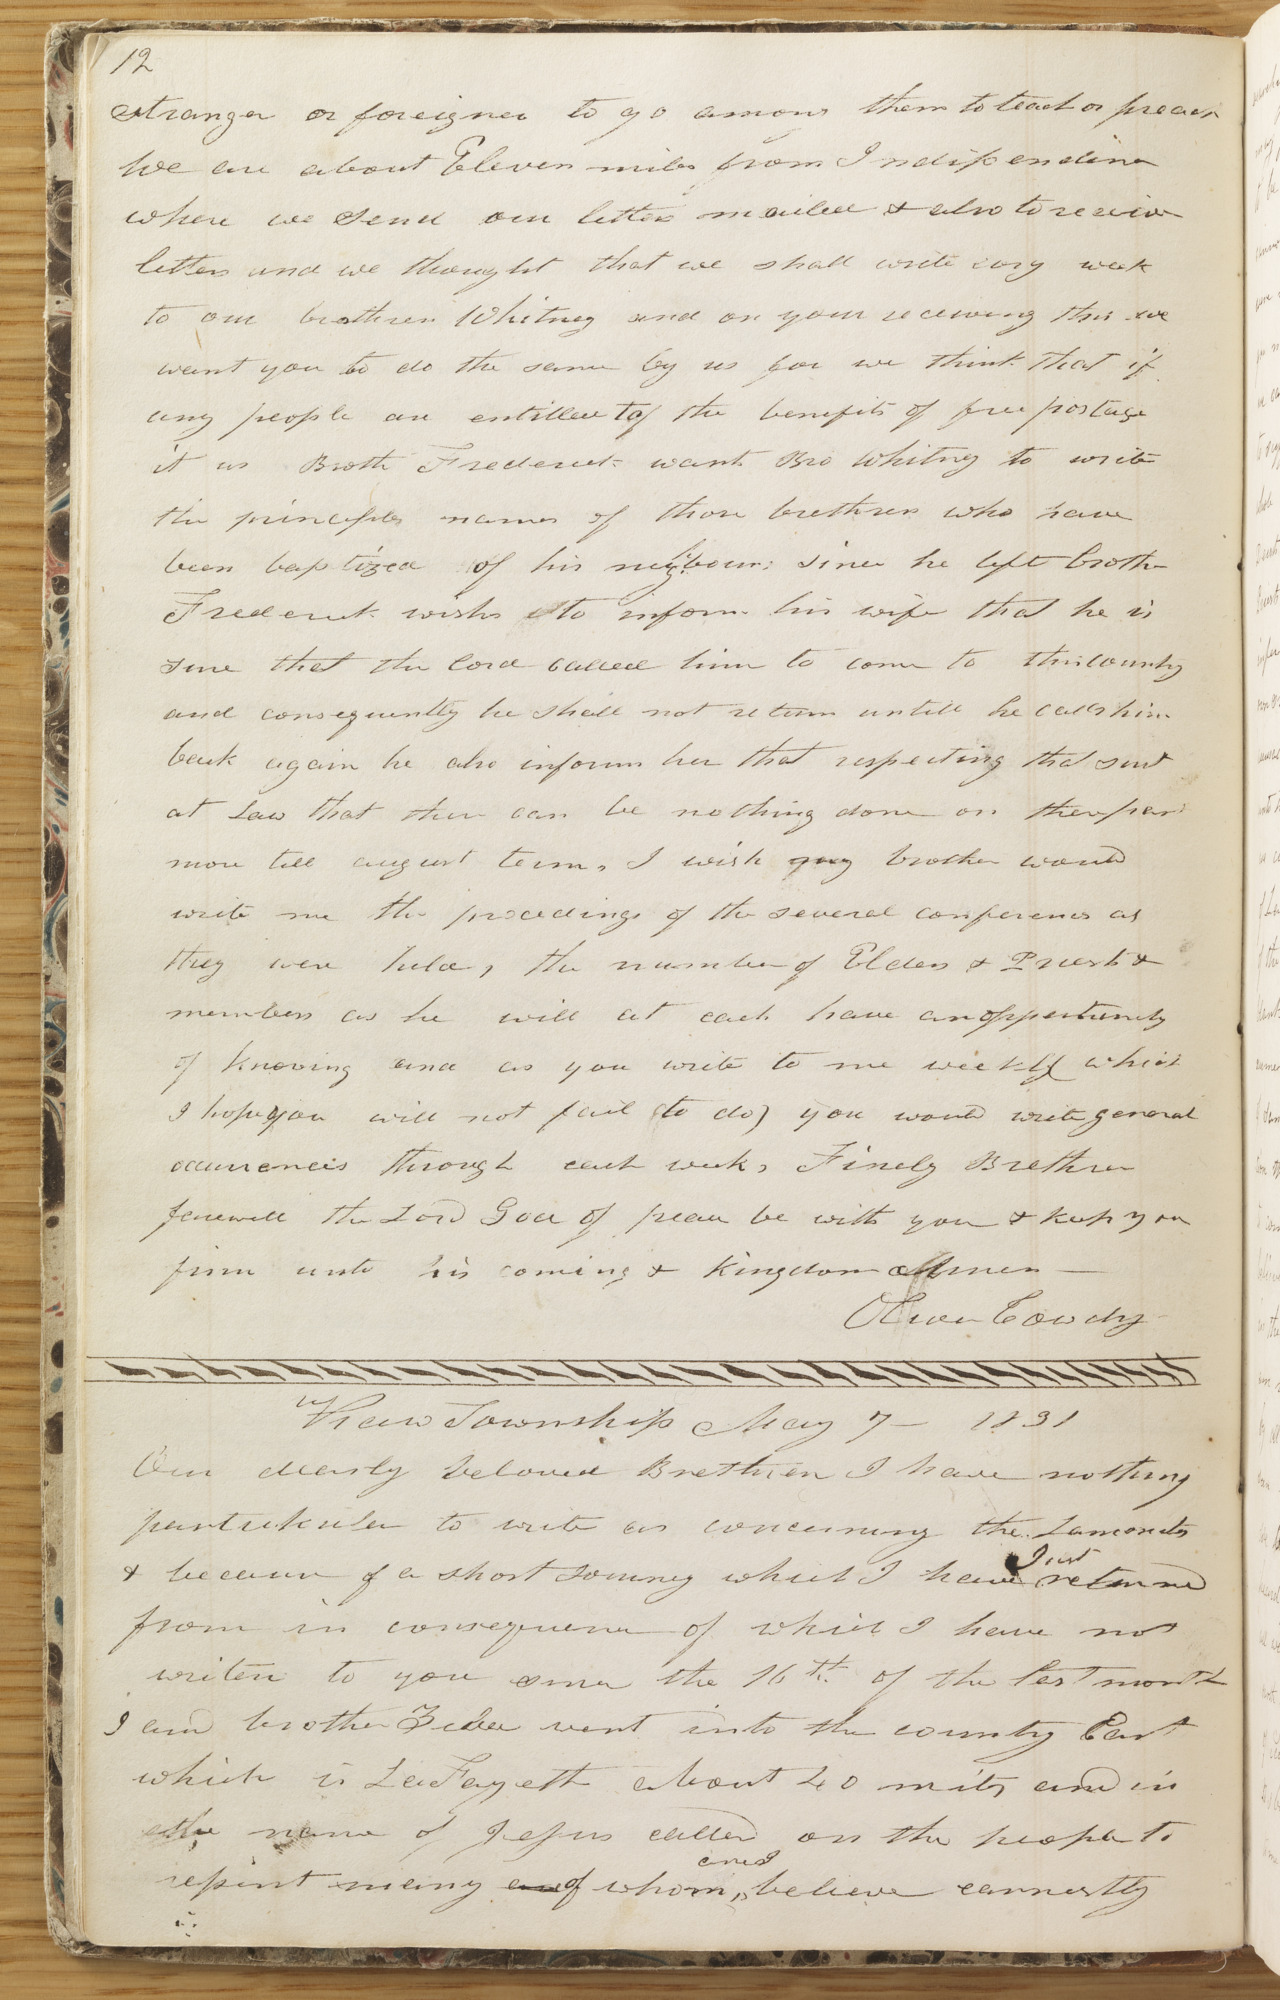 12
stranger or foreigner to go among them to teach or preach
We are about Eleven miles from Indipendince
where we send our letters mailed & also to receive
letters and we thought that we shall write evry week
to our brothren Whitney and on your receiving this we
want you to do the same by us for we think that if
any people are entilled to the benefits of free postage
it is us Broth Frederick wants Bro Whitney to write
the principle names of those brethren who have
been baptized of his neighbours since he left brother
Frederick wishes to inform his wife that he is
sure that the lord called him to come to this country
and consequently he shall not return untill he calls him
back again he also informs her that respecting that suit
at Law that there can be nothing done on ther part
more till august term, I wish my brother would
write me the procedings of the several conferences as
they were held, the number of Elders & Priests &
members as he will at each have an oppertunity
of knowing and as you write to me weekly which
I hope you will not fail (to do) you would write general
ocurrenceis through each week, Finely Brethren
farewell the Lord God of peace be with you & keep you
firm unto his coming & kingdom Amen —
Oliver Cowdry
Kaw Township May 7 — 1831
Our dearly beloved Brethren I have nothing
partickular to write as concerning the Lamonites
& because of a short Journey which I have Just returned
from in consequence of which I have not
writen to you since the 16th of the last month
I and brother Ziba went into the county East
which is LaFayett about 40 mils and in
the name of Jesus called on the people to
repent many of whom, and believe earnestly